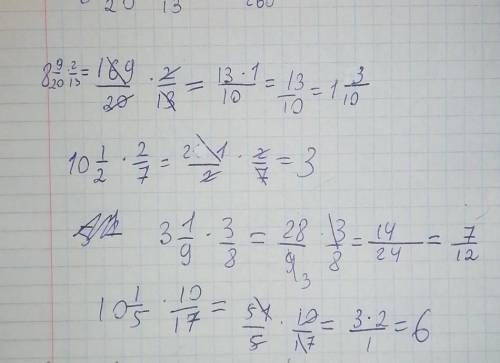 20 13 260
8 9/20 · 2/13 = 169/20 · 2/13 = 13·1/10 = 13/10 = 1 3/10
10 1/2 · 2/7 = 21/2 · 2/7 = 3
3 1/9 · 3/8 = 28/9 3 · 3/8 = 14/24 = 7/12
10 1/5 · 10/17 = 51/5 · 10/17 = 3·2/1 = 6